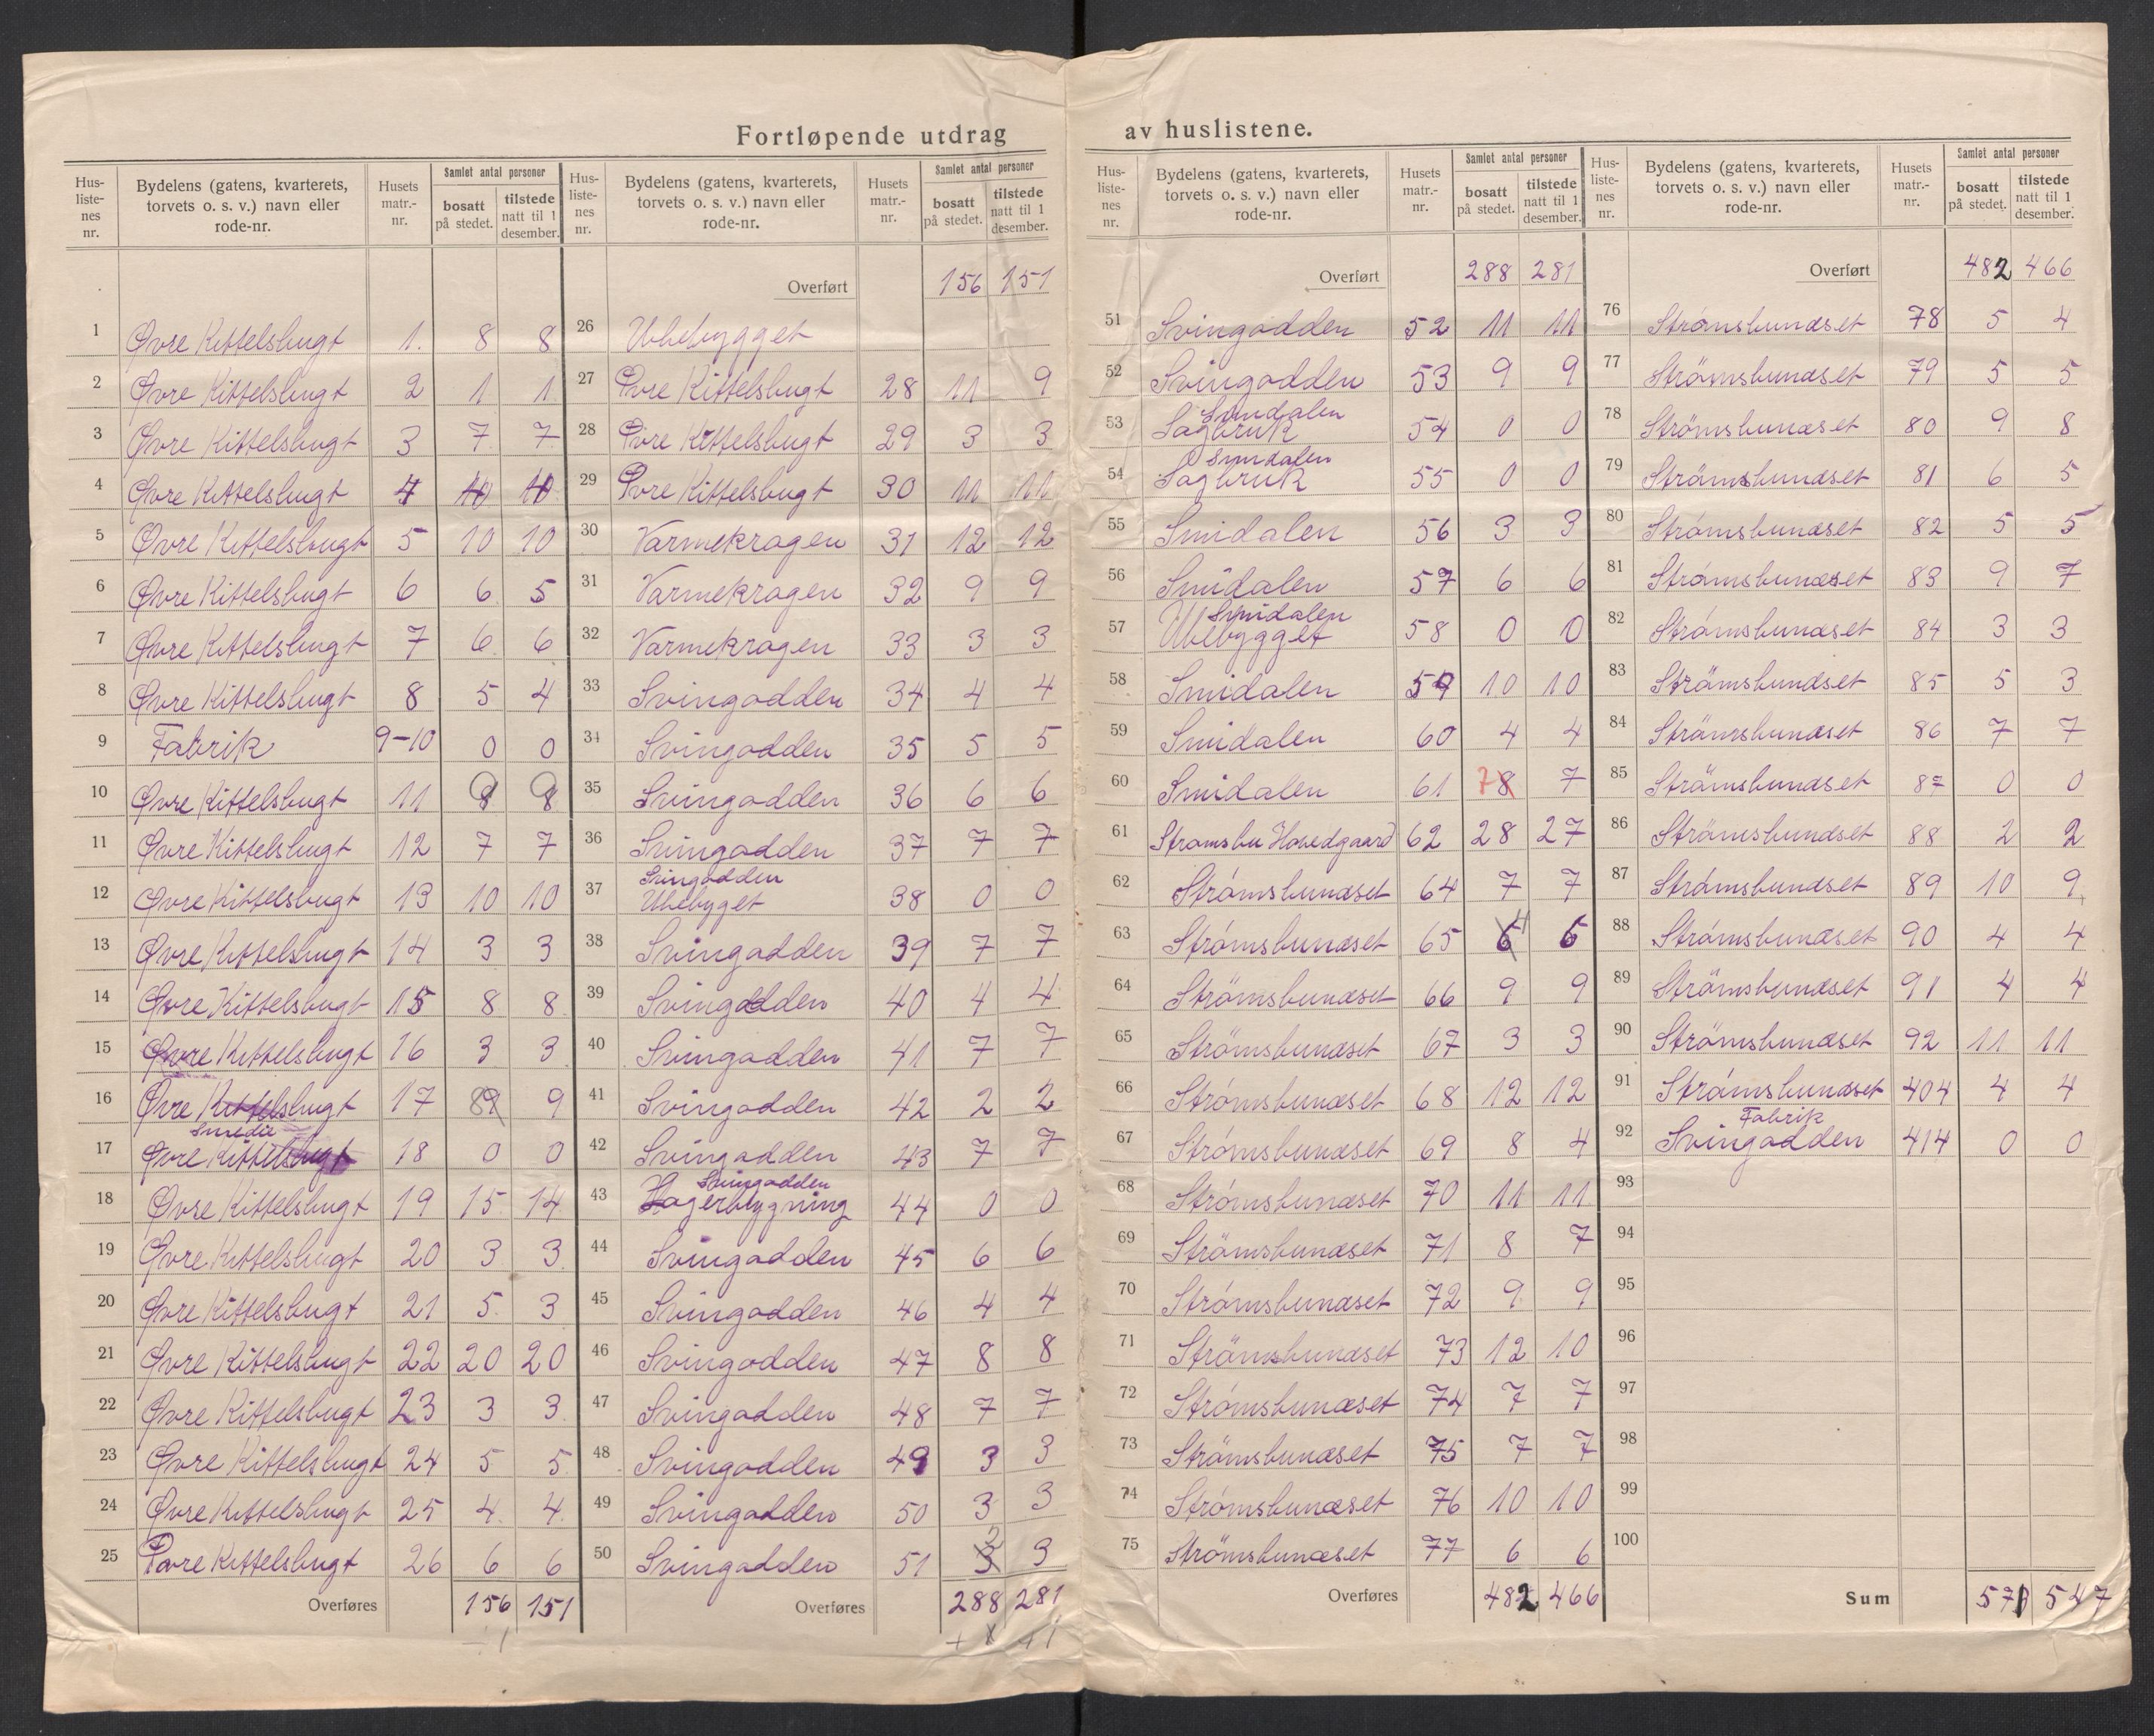 Fortløpende utdrag av huslistene.
Hus-liste-nes nr. | Bydelens (gatens, kvarterets, torvets o. s. v.) navn eller rode-nr. | Husets matr.-nr. | Samlet antal personer bosatt på stedet. | tilstede natt til 1 desember.
1 Øvre Kittelsbugt 1. 8 8
2 Øvre Kittelsbugt 2 1 1
3 Øvre Kittelsbugt 3 7 7
4 Øvre Kittelsbugt 4 10 10
5 Øvre Kittelsbugt 5 10 10
6 Øvre Kittelsbugt 6 6 5
7 Øvre Kittelsbugt 7 6 6
8 Øvre Kittelsbugt 8 5 4
9 Fabrik 9-10 0 0
10 Øvre Kittelsbugt 11 8 8
11 Øvre Kittelsbugt 12 7 7
12 Øvre Kittelsbugt 13 10 10
13 Øvre Kittelsbugt 14 3 3
14 Øvre Kittelsbugt 15 8 8
15 Øvre Kittelsbugt 16 3 3
16 Øvre Kittelsbugt 17 89 9
Smedie
17 Øvre Kittelsbugt 18 0 0
18 Øvre Kittelsbugt 19 15 14
19 Øvre Kittelsbugt 20 3 3
20 Øvre Kittelsbugt 21 5 3
21 Øvre Kittelsbugt 22 20 20
22 Øvre Kittelsbugt 23 3 3
23 Øvre Kittelsbugt 24 5 5
24 Øvre Kittelsbugt 25 4 4
25 Øvre Kittelsbugt 26 6 6
Overføres 156 151
- 1
Hus-liste-nes nr. | Bydelens (gatens, kvarterets, torvets o. s. v.) navn eller rode-nr. | Husets matr.-nr. | Samlet antal personer bosatt på stedet. | tilstede natt til 1 desember.
Overført 156 151
26 Ubebygget
27 Øvre Kittelsbugt 28 11 9
28 Øvre Kittelsbugt 29 3 3
29 Øvre Kittelsbugt 30 11 11
30 Varmekragen 31 12 12
31 Varmekragen 32 9 9
32 Varmekragen 33 3 3
33 Svingodden 34 4 4
34 Svingodden 35 5 5
35 Svingodden 36 6 6
36 Svingodden 37 7 7
Svingodden
37 Ubebyget 38 0 0
38 Svingodden 39 7 7
39 Svingodden 40 4 4
40 Svingodden 41 7 7
41 Svingodden 42 2 2
42 Svingodden 43 7 7
Svingodden
43 Lagerbygning 44 0 0
44 Svingodden 45 6 6
45 Svingodden 46 4 4
46 Svingodden 47 8 8
47 Svingodden 48 7 7
48 Svingodden 49 3 3
49 Svingodden 50 3 3
50 Svingodden 51 3 3
Overføres 288 281
+ 1
Hus-liste-nes nr. | Bydelens (gatens, kvarterets, torvets o. s. v.) navn eller rode-nr. | Husets matr.-nr. | Samlet antal personer bosatt på stedet. | tilstede natt til 1 desember.
Overført 288 281
51 Svingodden 52 11 11
52 Svingodden 53 9 9
Smidalen
53 Sagbruk 54 0 0
Smidalen
54 Sagbruk 55 0 0
55 Smidalen 56 3 3
56 Smidalen 57 6 6
Smidalen
57 Ubebygget 58 0 0
58 Smidalen 59 10 10
59 Smidalen 60 4 4
60 Smidalen 61 78 7
61 Stromsbu Hovedgaard 62 28 27
62 Strömsbunæset 64 7 7
63 Strömsbunæset 65 6 4 6
64 Strömsbunæset 66 9 9
65 Strömsbunæset 67 3 3
66 Strömsbunæset 68 12 12
67 Strömsbunæset 69 8 4
68 Strömsbunæset 70 11 11
69 Strömsbunæset 71 8 7
70 Strömsbunæset 72 9 9
71 Strömsbunæset 73 12 10
72 Strömsbunæset 74 7 7
73 Strömsbunæset 75 7 7
74 Strömsbunæset 76 10 10
75 Strömsbunæset 77 6 6
Overføres 482 466
Hus-liste-nes nr. | Bydelens (gatens, kvarterets, torvets o. s. v.) navn eller rode-nr. | Husets matr.-nr. | Samlet antal personer bosatt på stedet. | tilstede natt til 1 desember.
Overført 482 466
76 Strömsbunæset 78 5 4
77 Strömsbunæset 79 5 5
78 Strömsbunæset 80 9 8
79 Strömsbunæset 81 6 5
80 Strömsbunæset 82 5 5
81 Strömsbunæset 83 9 7
82 Strömsbunæset 84 3 3
83 Strömsbunæset 85 5 3
84 Strömsbunæset 86 7 7
85 Strömsbunæset 87 0 0
86 Strömsbunæset 88 2 2
87 Strömsbunæset 89 10 9
88 Strömsbunæset 90 4 4
89 Strömsbunæset 91 4 4
90 Strömsbunæset 92 11 11
91 Strömsbunæset 404 4 4
Fabrik
92 Svingodden 414 0 0
93
94
95
96
97
98
99
100
Sum 571 547